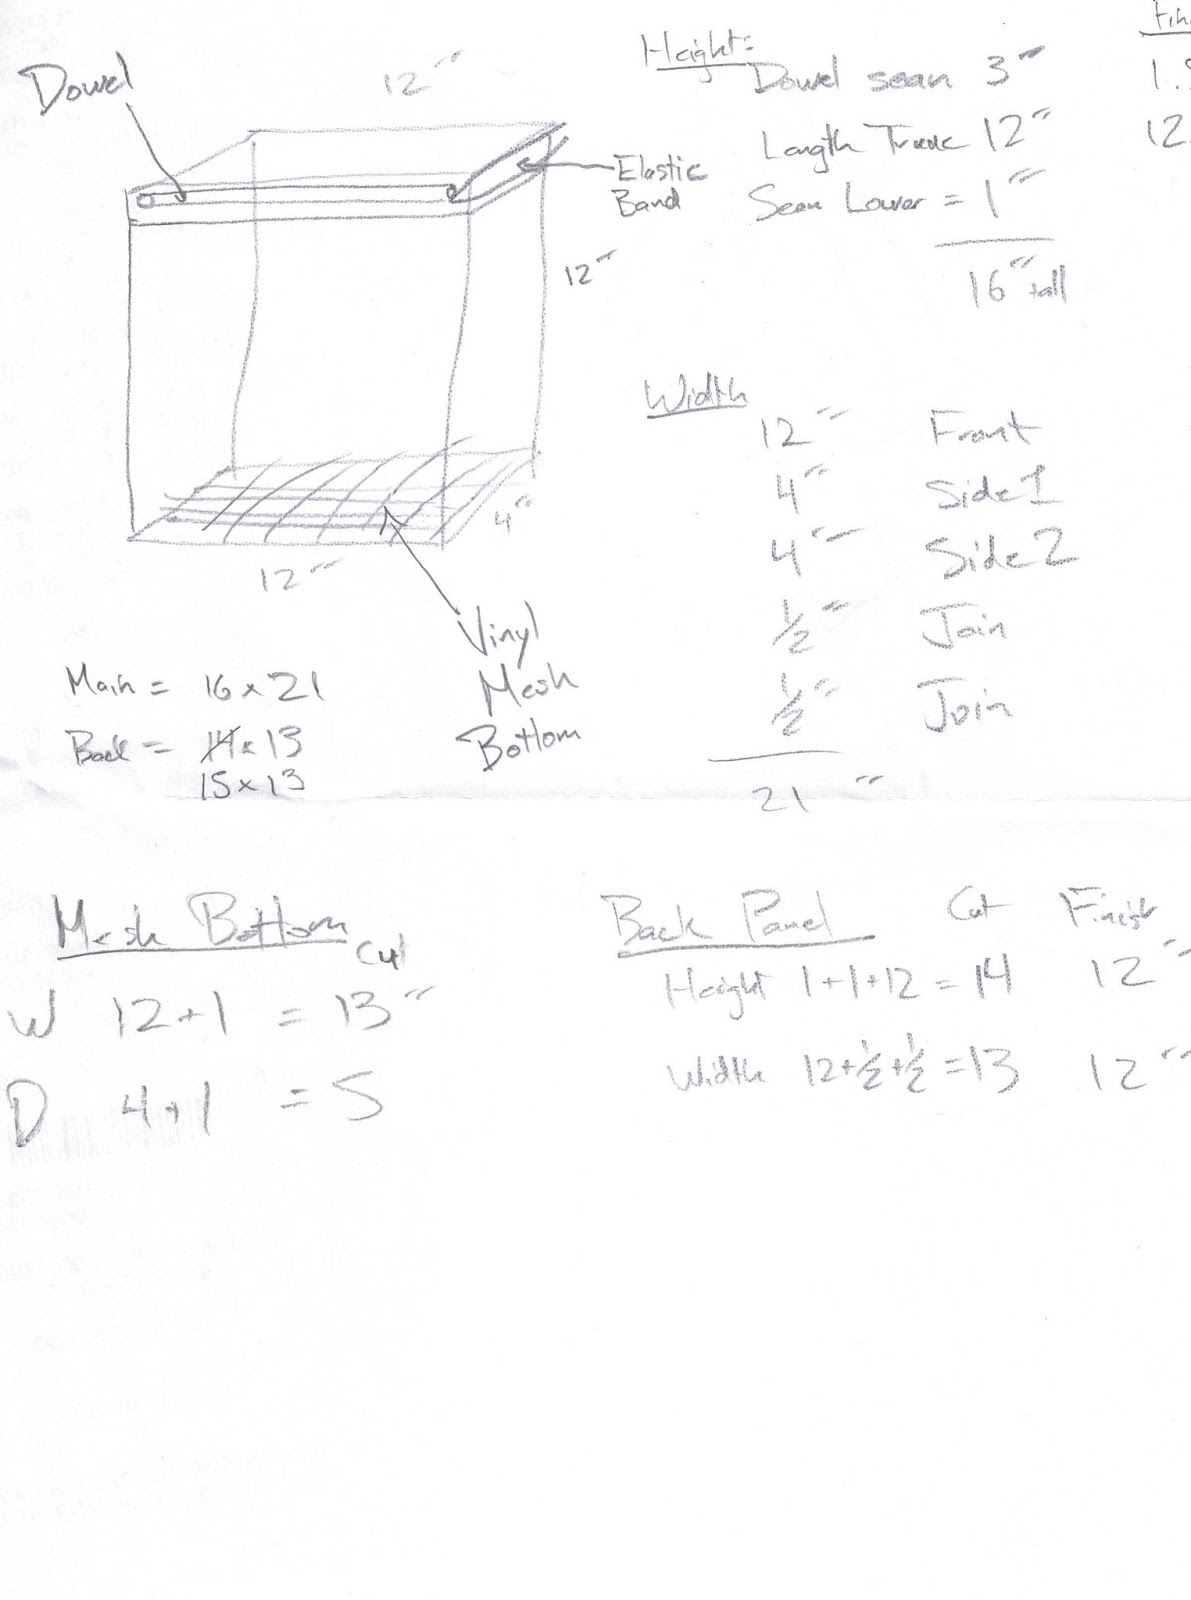 Dowel
12"
Elastic
Band
12"
4"
12"
Vinyl
Mesh
Bottom
Main = 16 x 21
Back = 14 x 13
15 x 13
Height:
Dowel seam 3"
Length Trunk 12"
Seam Lower = 1"
16" tall
1.
12.
Width
12" Front
4" Side 1
4" Side 2
½" Join
½" Join
21"
Mesh Bottom
Cut
W 12+1 = 13"
D 4+1 = 5
Back Panel Cut Finish
Height 1+1+12 = 14 12"
Width 12+½+½ = 13 12"